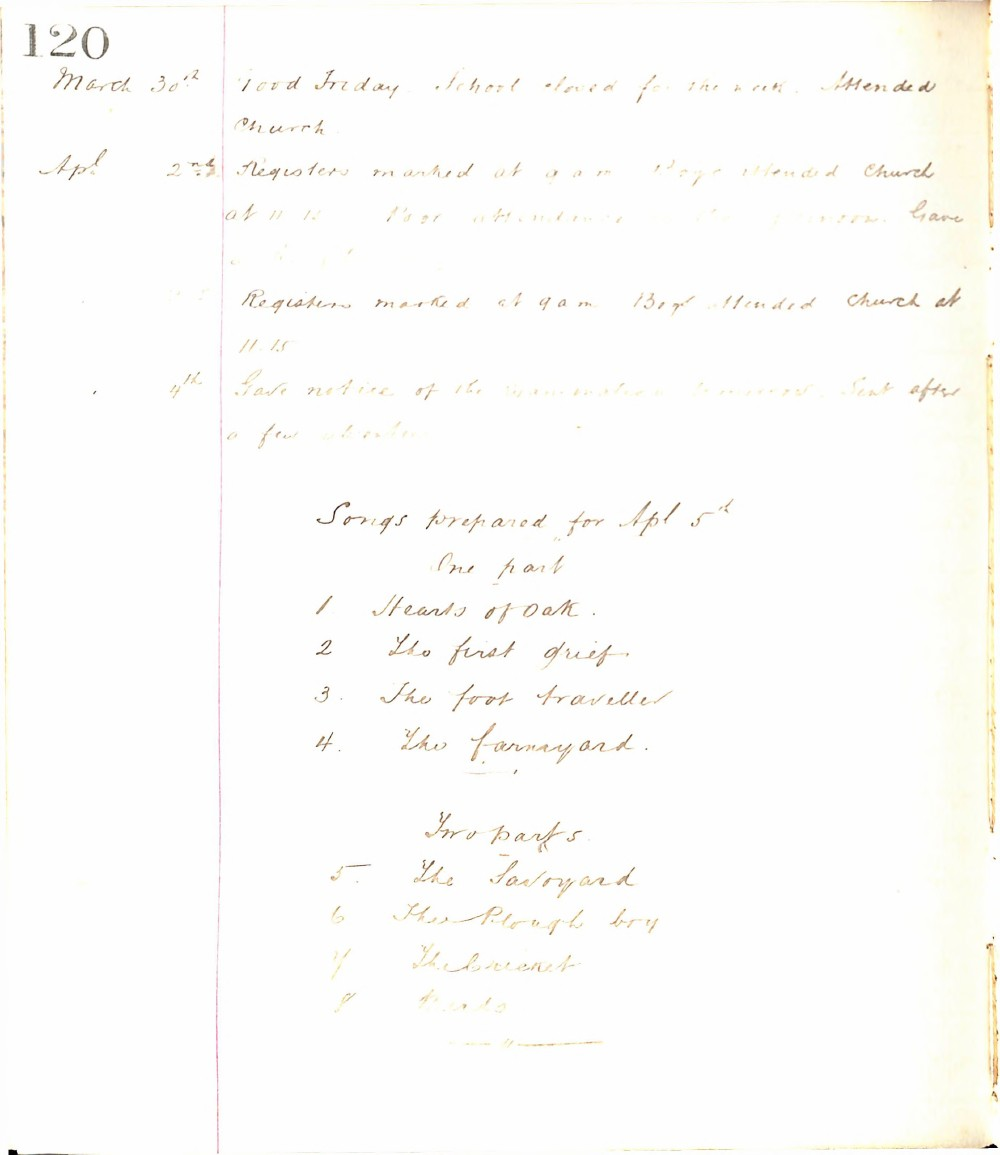 120
March 30th Good Friday. School closed for the week. Attended
Church.
Apl 2nd Registers marked at 9 a m Boys attended Church
at 11 15 Poor attendance Gave
Registers marked at 9 a m Boys attended Church at
11.15
4th Gave notice of the examination tomorrow. Sent after
a few absentees
Songs prepared for Apl 5th
One part
1 Hearts of Oak.
2 The first grief.
3. The foot traveller
4. The farmyard.
Two parts.
5. The Savoyard
6 The Plough boy
7 The Cricket
8